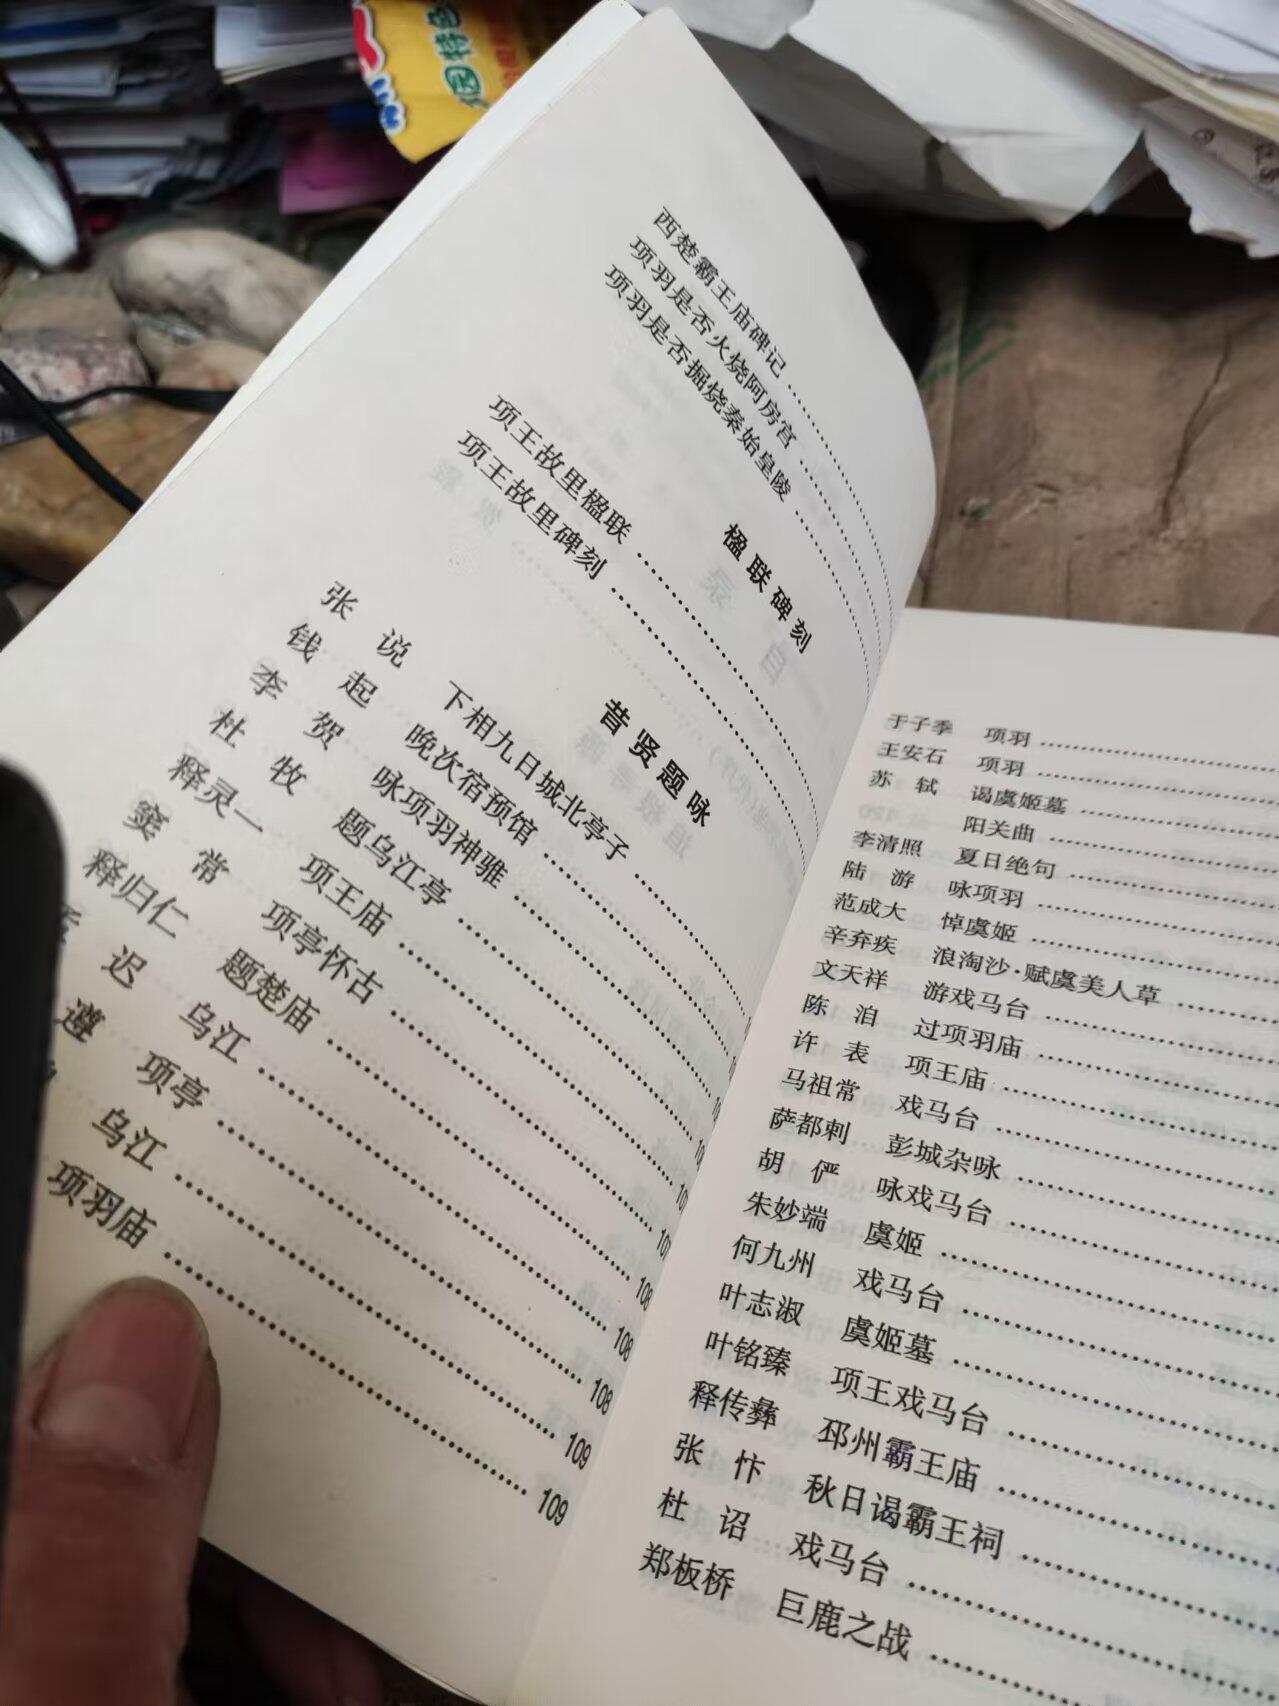 园特色
西楚霸王庙碑记
项羽是否火烧阿房宫
项羽是否掘烧秦始皇陵
楹联碑刻
项王故里楹联
项王故里碑刻
昔贤题咏
张 说 下相九日城北亭子
钱 起 晚次宿预馆
李 贺 咏项羽神骓
杜 牧 题乌江亭
释灵一 项王庙
窦 常 项亭怀古 107
释归仁 题楚庙 108
迟 乌江 108
遵 项亭 108
乌江 109
项羽庙 109
于子季 项羽
王安石 项羽
苏 轼 谒虞姬墓
阳关曲
李清照 夏日绝句
陆 游 咏项羽
范成大 悼虞姬
辛弃疾 浪淘沙·赋虞美人草
文天祥 游戏马台
陈 洎 过项羽庙
许 表 项王庙
马祖常 戏马台
萨都剌 彭城杂咏
胡 俨 咏戏马台
朱妙端 虞姬
何九州 戏马台
叶志淑 虞姬墓
叶铭臻 项王戏马台
释传彝 邳州霸王庙
张 忭 秋日谒霸王祠
杜 诏 戏马台
郑板桥 巨鹿之战